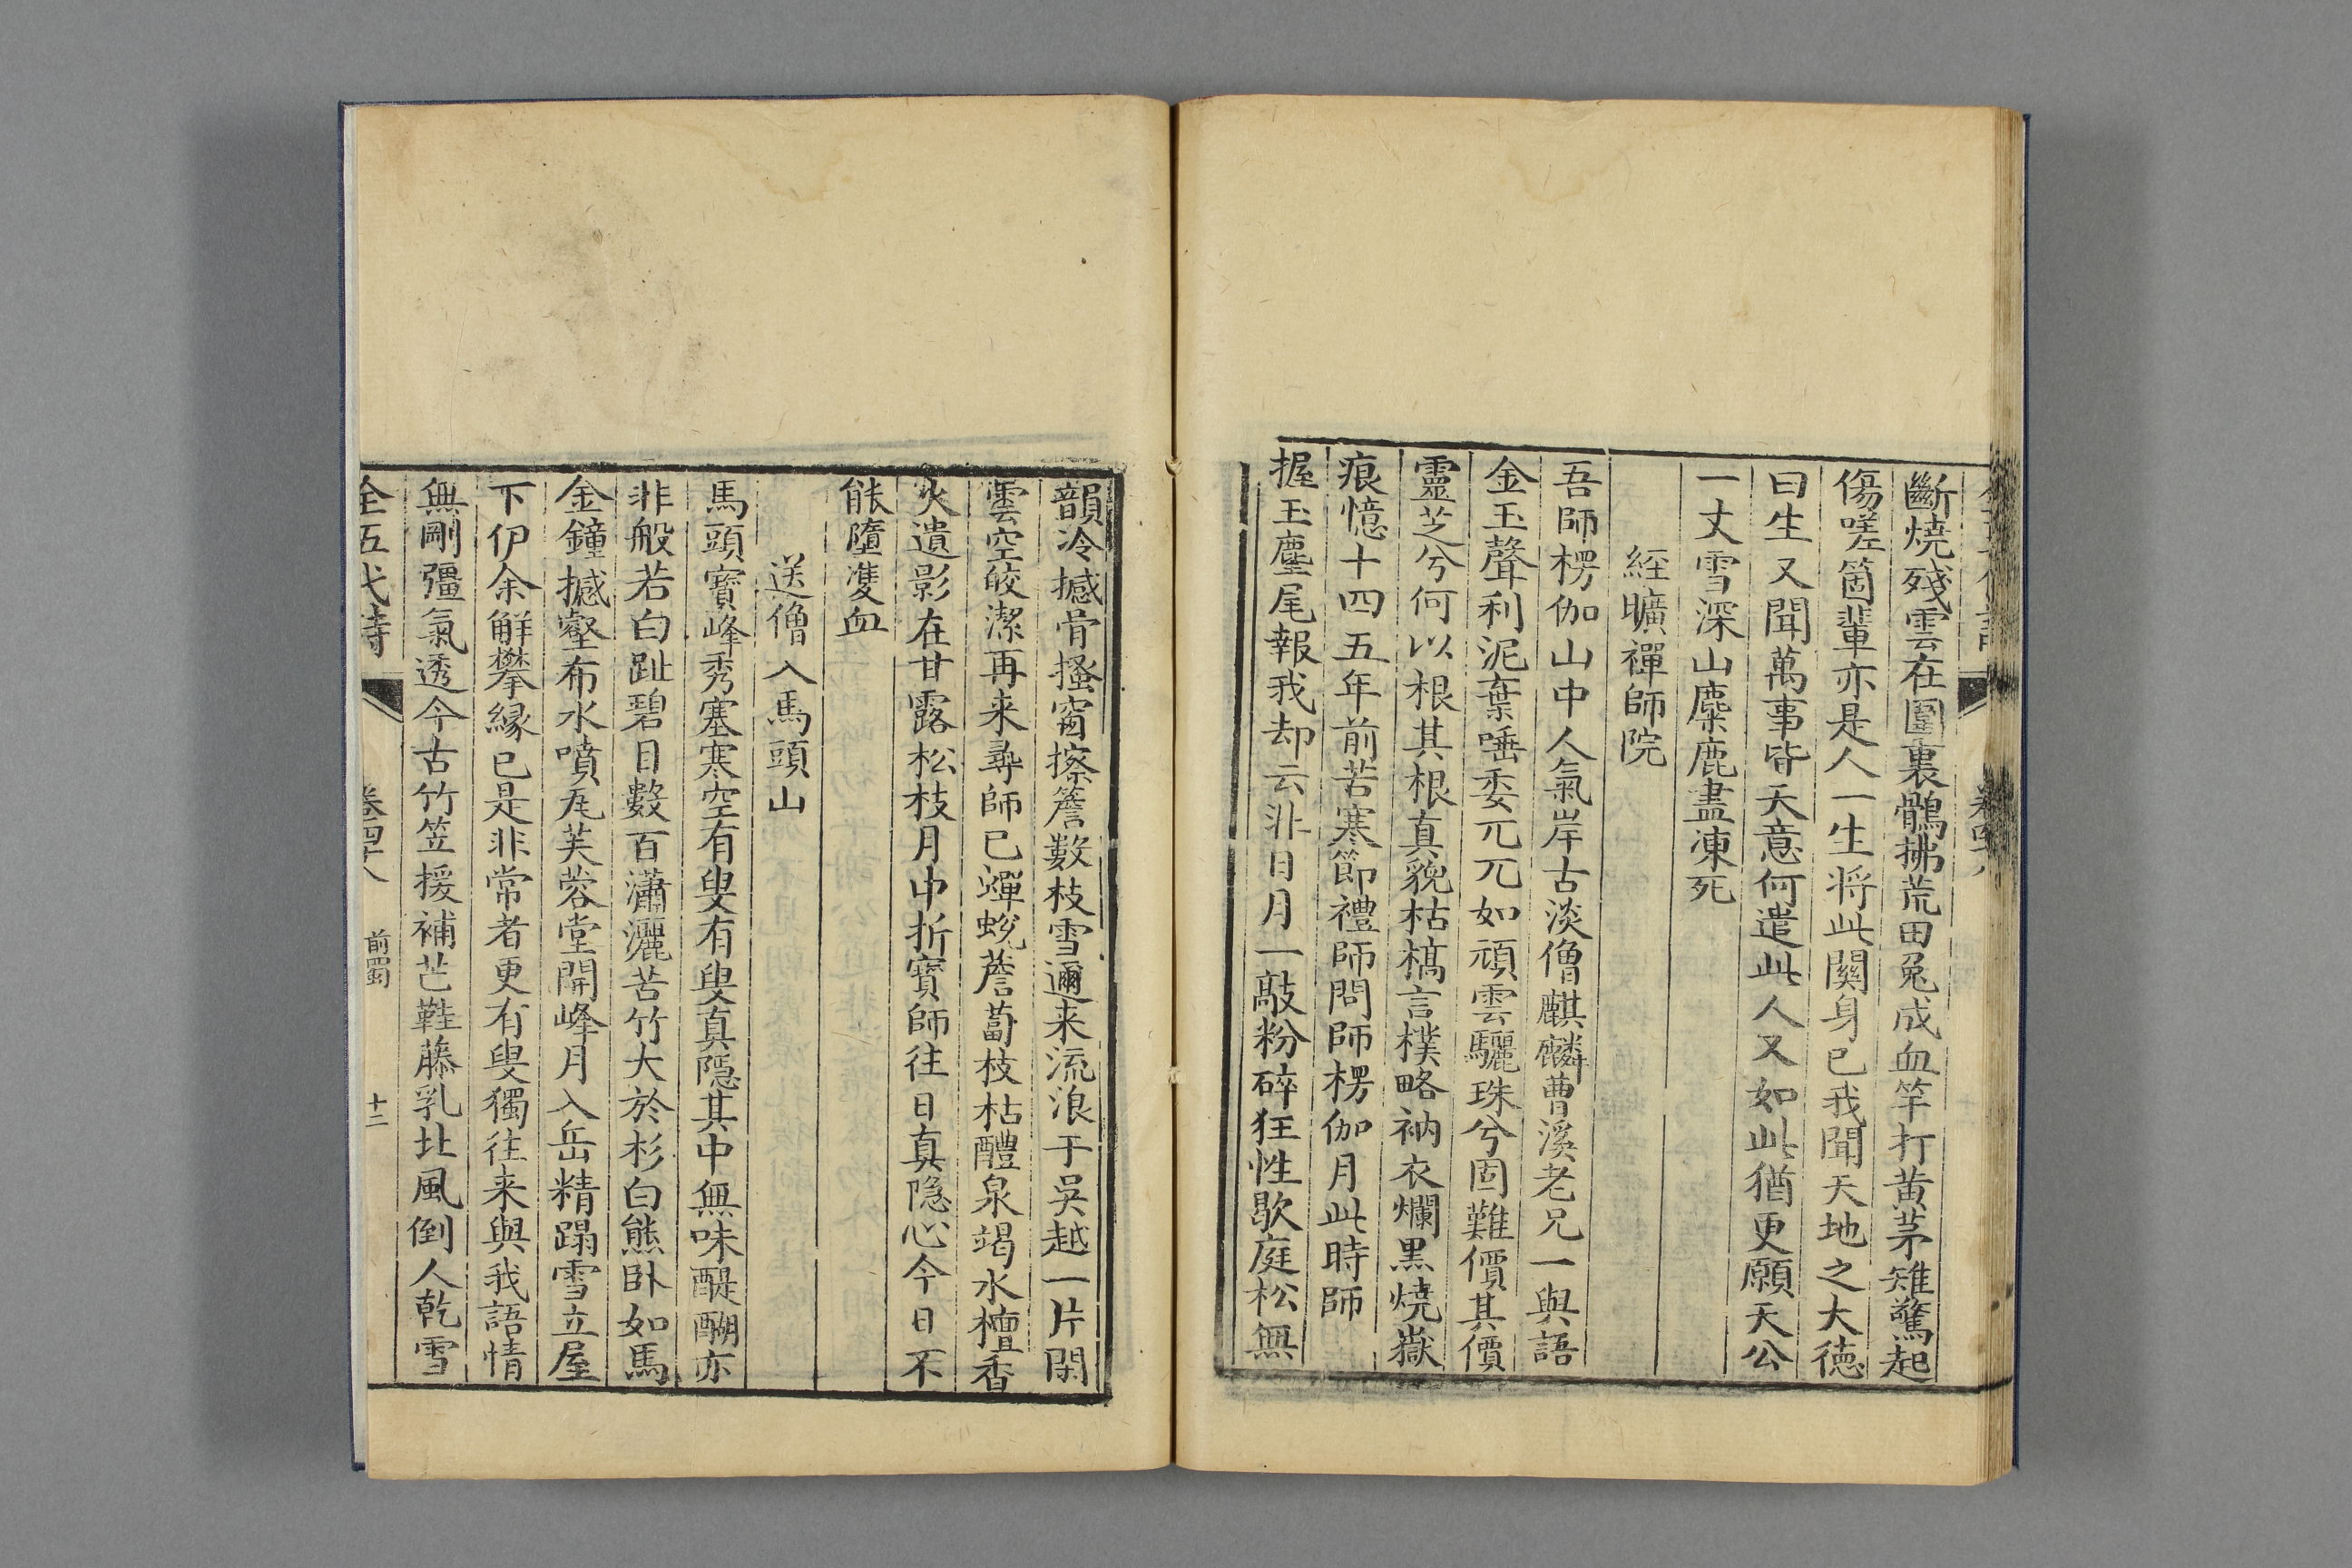 斷燒殘雲在圍裏鶻拂荒田兔成血竿打黃茅雉驚起
傷嗟箇輩亦是人一生將此關身已我聞天地之大德
曰生又聞萬事皆天意何遣此人又如此猶更願天公
一丈雪深山麋鹿盡凍死
經曠禪師院
吾師楞伽山中人氣岸古淡僧麒麟曹溪老兄一與語
金玉聲利泥棄唾委兀兀如頑雲驪珠兮固難價其價
靈芝兮何以根其根真貌枯槁言樸略衲衣爛黑燒嶽
痕憶十四五年前苦寒節禮師問師楞伽月此時師
握玉麈尾報我却云非日月一敲粉碎狂性歇庭松無
韻冷撼骨搔窗擦簷數枝雪邇来流浪于吳越一片閑
雲空皎潔再来尋師已蟬蛻薝蔔枝枯醴泉竭水檀香
火遺影在甘露松枝月中折寶師往日真隱心今日不
能墮雙血
送僧入馬頭山
馬頭寶峰秀塞寒空有叟有叟真隱其中無味醍醐亦
非般若白趾碧目數百瀟灑苦竹大於杉白熊卧如馬
金鐘撼壑布水噴瓦芙蓉堂開峰月入岳精蹋雪立屋
下伊余解攀緣已是非常者更有叟獨往来與我語情
無剛彊氣透今古竹笠援補芒鞋藤乳北風倒人乾雪
全五代詩 卷四十八 前蜀 十二